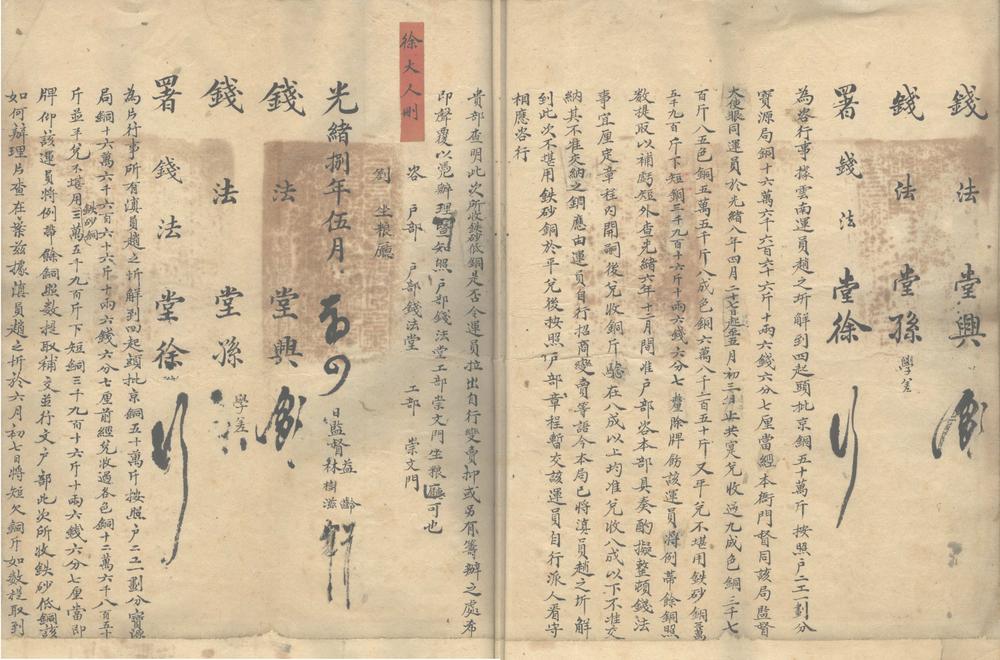 錢法堂興
錢法堂孫 學差
署錢法堂徐 行
為咨行事據雲南運員趙之圻解到四起頭批京銅五十萬斤按照戶二工一劃分
寶源局銅十六萬六千六百六十六斤十兩六錢六分七厘當經本衙門督同該局監督
大使眼同運員於光緒八年四月二十七日起至五月初三日止共寔兌收過九成色銅三千七
百斤八五色銅五萬五千斤八成色銅六萬八千三百五十斤又平兌不堪用鉄砂銅叁萬
五千九百斤下短銅三千九百十六斤十兩六錢六分七釐除牌飭該運員將例帶餘銅照
數提取以補虧短外查光緒六年十二月間准戶部咨本部具奏酌擬整頓錢法
事宜厘定章程內開嗣後兌收銅斤驗在八成以上均准兌收八成以下不准交
納其不准交納之銅應由運員自行招商變賣等語今本局已將滇員趙之圻解
到此次不堪用鉄砂銅於平兌後按照戶部章程暫交該運員自行派人看守
相應咨行
貴部查明此次所收鉄砂低銅是否令運員拉出自行變賣抑或另有籌辦之處希
即聲覆以憑辦理 知照戶部錢法堂工部崇文門坐粮廳可也
徐大人刪
咨 戶部 戶部錢法堂 工部 崇文門
劉 坐粮廳
光緒捌年伍月 日監督 益齡 林樹滋
錢法堂興
錢法堂孫 學差
署錢法堂徐 行
為片行事所有滇員趙之圻解到四起頭批京銅五十萬斤按照戶二工一劃分寶源
局銅十六萬六千六百六十六斤十兩六錢六分七厘前經兌收過各色銅十二萬六千八百五十
斤並平兌不堪用鉄砂銅三萬五千九百斤下短銅三千九百十六斤十兩六錢六分七厘當即
牌仰該運員將例帶餘銅照數提取補交並行文戶部此次所收鉄砂低銅該
如何辦理片查在案茲據滇員趙之圻於六月初七日將短欠銅斤如數提取到